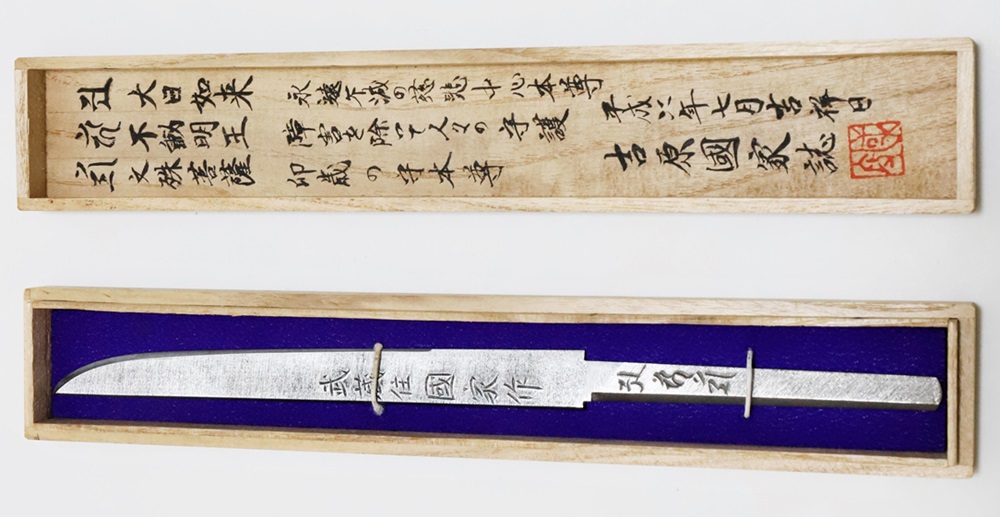 大日如来
不動明王
文殊菩薩
永遠不滅の慈悲十心本尊
障害を除いて人々の守護
卯歳の守本尊
平成年七月吉祥日
吉原國家誌
武蔵住國家作